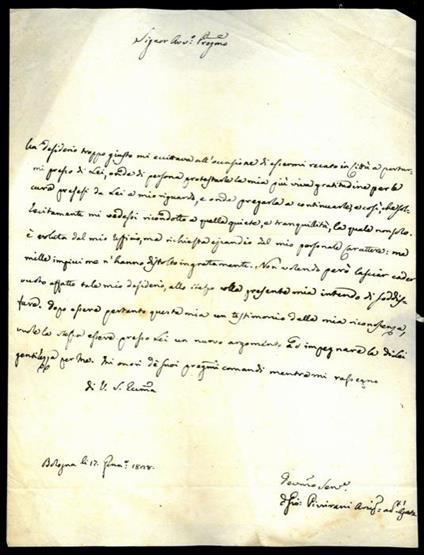 Signor Avv.º Pregmo
Un desiderio troppo giusto mi eccittava all'occasione di essermi recato in Città a portar-
mi presso di Lei, onde di persona protestarle la mia più viva gratitudine per le
cure presesi da Lei a mio riguardo, e onde pregarla a continuarle, e così
mi vedessi ricondotto a quella quiete, e tranquillità, la quale non solo
è voluta dal mio Uffizio, ma richiesta eziandio dal mio personale Carattere: ma
mille impicci me n'hanno distolto ingratamente. Non volendo però lasciar cader
vuoto affatto tale mio desiderio, allo stesso colla presente mia intendo di soddis
fare. Dopo essere pertanto questa mia un testimonio della mia riconoscenza,
vuole la stessa essere presso Lei un nuovo argomento ad impegnare la di lei
gentilezza per me. Mi onori de' suoi pregmi comandi mentre mi rassegno
di V. S. Eccma
Bologna li 17. Genn.º 1828.
Devmo Serv.e